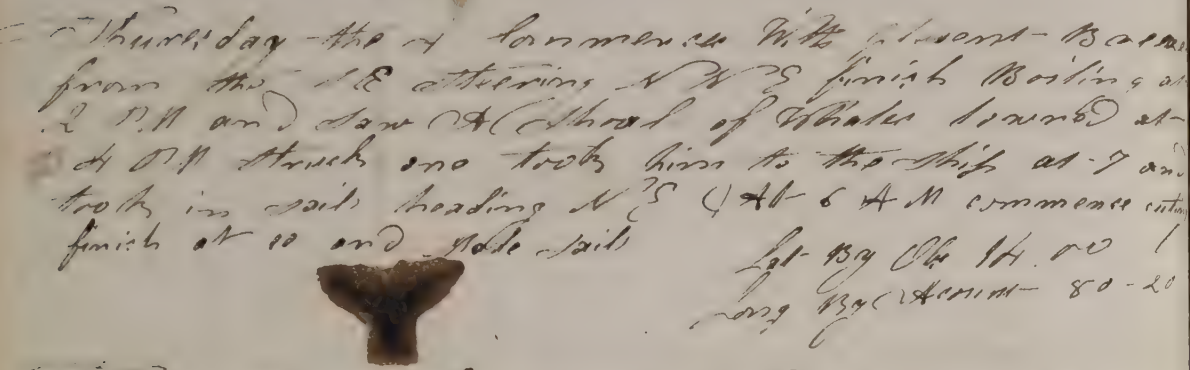 Thuresday the 4 Commences With plesent Breese
from the SE stteering N N E finish Boiling at
2 P.M and saw A Shoal of Whales lowred at
4 P.M struck one took him to the ship at 7 and
took in sails heading N E At 6 A M commence cuting
finish at 10 and made sails
Lat By Obs 14.00
Long By Acount 80-20